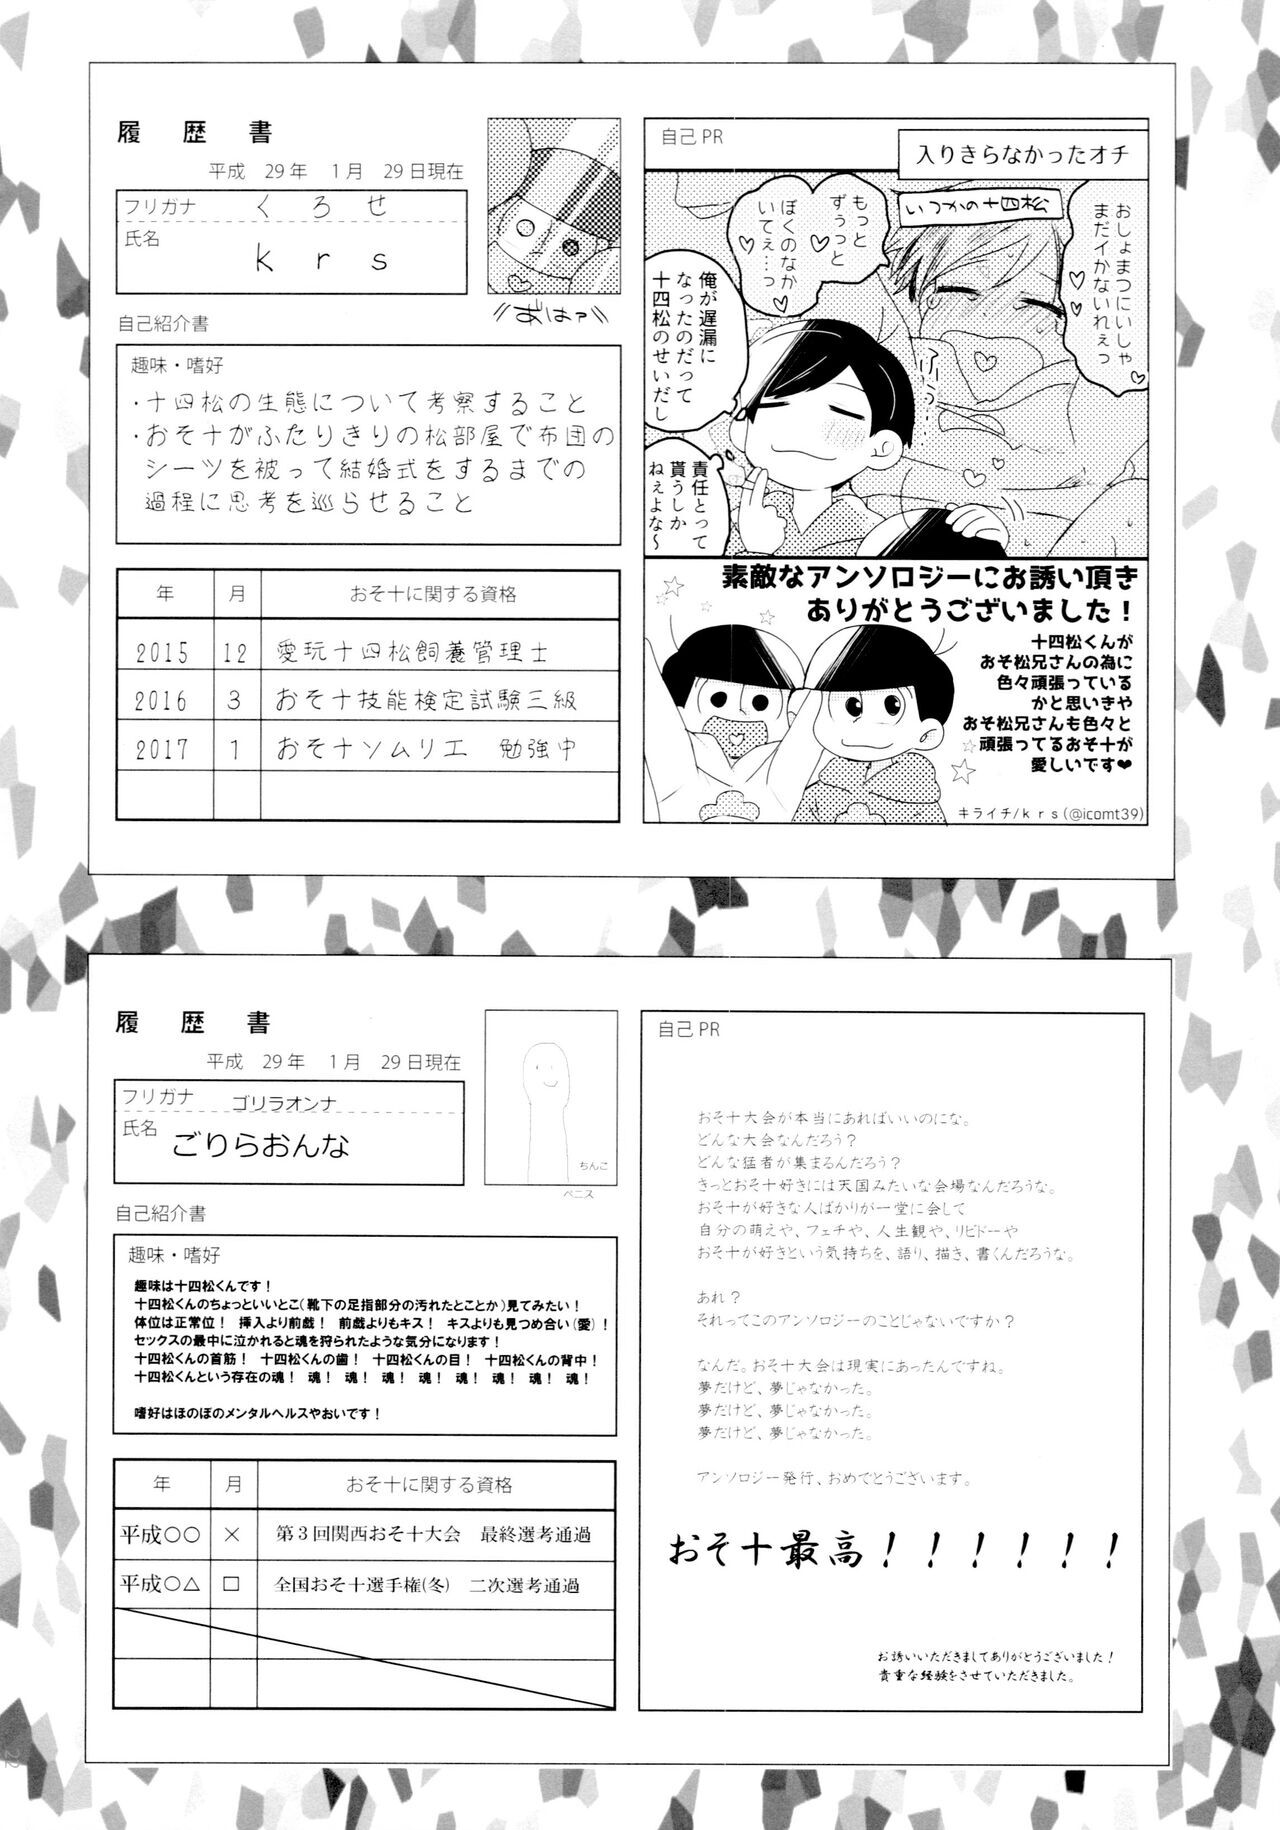 履歴書
平成 29年 1月 29日現在
フリガナ くろせ
氏名
krs
自己紹介書
趣味・嗜好
・十四松の生態について考察すること
・おそ十がふたりきりの松部屋で布団の
シーツを被って結婚式をするまでの
過程に思考を巡らせること
年 月 おそ十に関する資格
2015 12 愛玩十四松飼養管理士
2016 3 おそ十技能検定試験三級
2017 1 おそ十ソムリエ 勉強中
自己PR
入りきらなかったオチ
いつかの十四松
おしょまつにいしゃ
まだイかないれぇっ
もっと
ずぅっと
ぼくのなか
いてぇ…っ
俺が遅漏に
なったのだって
十四松のせいだし
責任とって
貰うしか
ねぇよな〜
素敵なアンソロジーにお誘い頂き
ありがとうございました！
十四松くんが
おそ松兄さんの為に
色々頑張っている
かと思いきや
おそ松兄さんも色々と
頑張ってるおそ十が
愛しいです♥
キライチ/krs(@icomt39)
履歴書
平成 29年 1月 29日現在
フリガナ ゴリラオンナ
氏名
ごりらおんな
ちんこ
ペニス
自己紹介書
趣味・嗜好
趣味は十四松くんです！
十四松くんのちょっといいとこ（靴下の足指部分の汚れたとことか）見てみたい！
体位は正常位！ 挿入より前戯！ 前戯よりもキス！ キスよりも見つめ合い（愛）！
セックスの最中に泣かれると魂を狩られたような気分になります！
十四松くんの首筋！ 十四松くんの歯！ 十四松くんの目！ 十四松くんの背中！
十四松くんという存在の魂！ 魂！ 魂！ 魂！ 魂！ 魂！ 魂！ 魂！ 魂！
嗜好はほのぼのメンタルヘルスやおいです！
年 月 おそ十に関する資格
平成○○ × 第3回関西おそ十大会 最終選考通過
平成○△ □ 全国おそ十選手権(冬) 二次選考通過
自己PR
おそ十大会が本当にあればいいのにな。
どんな大会なんだろう？
どんな猛者が集まるんだろう？
きっとおそ十好きには天国みたいな会場なんだろうな。
おそ十が好きな人ばかりが一堂に会して
自分の萌えや、フェチや、人生観や、リビドーや
おそ十が好きという気持ちを、語り、描き、書くんだろうな。
あれ？
それってこのアンソロジーのことじゃないですか？
なんだ。おそ十大会は現実にあったんですね。
夢だけど、夢じゃなかった。
夢だけど、夢じゃなかった。
夢だけど、夢じゃなかった。
アンソロジー発行、おめでとうございます。
おそ十最高！！！！！！
お誘いいただきましてありがとうございました！
貴重な経験をさせていただきました。